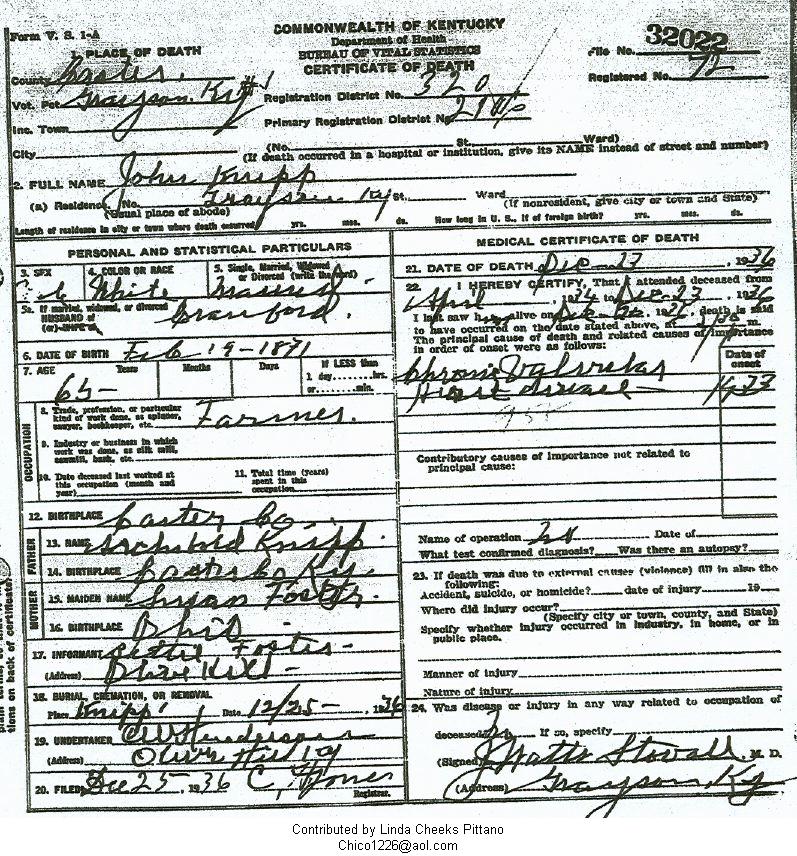 Form V. S. 1-A
COMMONWEALTH OF KENTUCKY
Department of Health
BUREAU OF VITAL STATISTICS
CERTIFICATE OF DEATH
File No. 32022
Registered No. 72
1. PLACE OF DEATH
County Carter
Vot. Pct Grayson Ky #1
Inc. Town
City
Registration District No. 320
Primary Registration District No.
(No. St. Ward)
(If death occurred in a hospital or institution, give its NAME instead of street and number)
2. FULL NAME John Knipp
(a) Residence. No. Grayson Ky St. Ward
(Usual place of abode) (If nonresident, give city or town and State)
Length of residence in city or town where death occurred yrs. mos. ds. How long in U. S., if of foreign birth? yrs. mos. ds.
PERSONAL AND STATISTICAL PARTICULARS
3. SEX
4. COLOR OR RACE White
5. Single, Married, Widowed or Divorced (write the word) Married
5a. If married, widowed or divorced
HUSBAND of
(or) WIFE of Crawford
6. DATE OF BIRTH Feb 19-1871
7. AGE Years Months Days If LESS than
65 1 day hrs.
or min.
OCCUPATION
8. Trade, profession, or particular
kind of work done, as spinner,
sawyer, bookkeeper, etc. Farmer.
9. Industry or business in which
work was done, as silk mill,
sawmill, bank, etc.
10. Date deceased last worked at
this occupation (month and
year)
11. Total time (years)
spent in this
occupation
12. BIRTHPLACE Carter Co
FATHER
13. NAME Archibald Knipp
14. BIRTHPLACE Carter Co Ky.
MOTHER
15. MAIDEN NAME Susan Foster
16. BIRTHPLACE Ohio
17. INFORMANT Foster
(Address) Olive Hill
18. BURIAL, CREMATION, OR REMOVAL
Place Knipp Date 12/25- , 1936
19. UNDERTAKER Henderson
(Address) Olive Hill Ky
20. FILED Dec 25 , 1936 C. Jones
Registrar.
MEDICAL CERTIFICATE OF DEATH
21. DATE OF DEATH Dec-23 , 1936
22. I HEREBY CERTIFY, That I attended deceased from
April , 1934 to Dec-23 , 1936
I last saw him alive on , 1936, death is said
to have occurred on the date stated above, at m.
The principal cause of death and related causes of importance
in order of onset were as follows:
Date of
onset
Chronic Valvular
Heart disease 1933
Contributory causes of importance not related to
principal cause:
Name of operation no Date of
What test confirmed diagnosis? Was there an autopsy?
23. If death was due to external causes (violence) fill in also the
following:
Accident, suicide, or homicide? date of injury 19
Where did injury occur?
(Specify city or town, county, and State)
Specify whether injury occurred in industry, in home, or in
public place.
Manner of injury
Nature of injury
24. Was disease or injury in any way related to occupation of
deceased? No If so, specify
(Signed) J Watts Stovall, M. D.
(Address) Grayson, Ky
tions on back of certificate.
Contributed by Linda Cheeks Pittano
Chico1226@aol.com